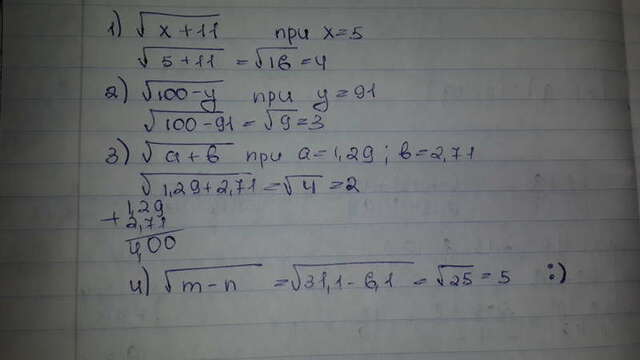 1) √x+11 при x=5
√5+11 =√16=4
2) √100-y при y=91
√100-91=√9=3
3) √a+b при a=1,29; b=2,71
√1,29+2,71=√4=2
1,29
+2,71
4,00
4) √m-n =√31,1-6,1 =√25=5 :)